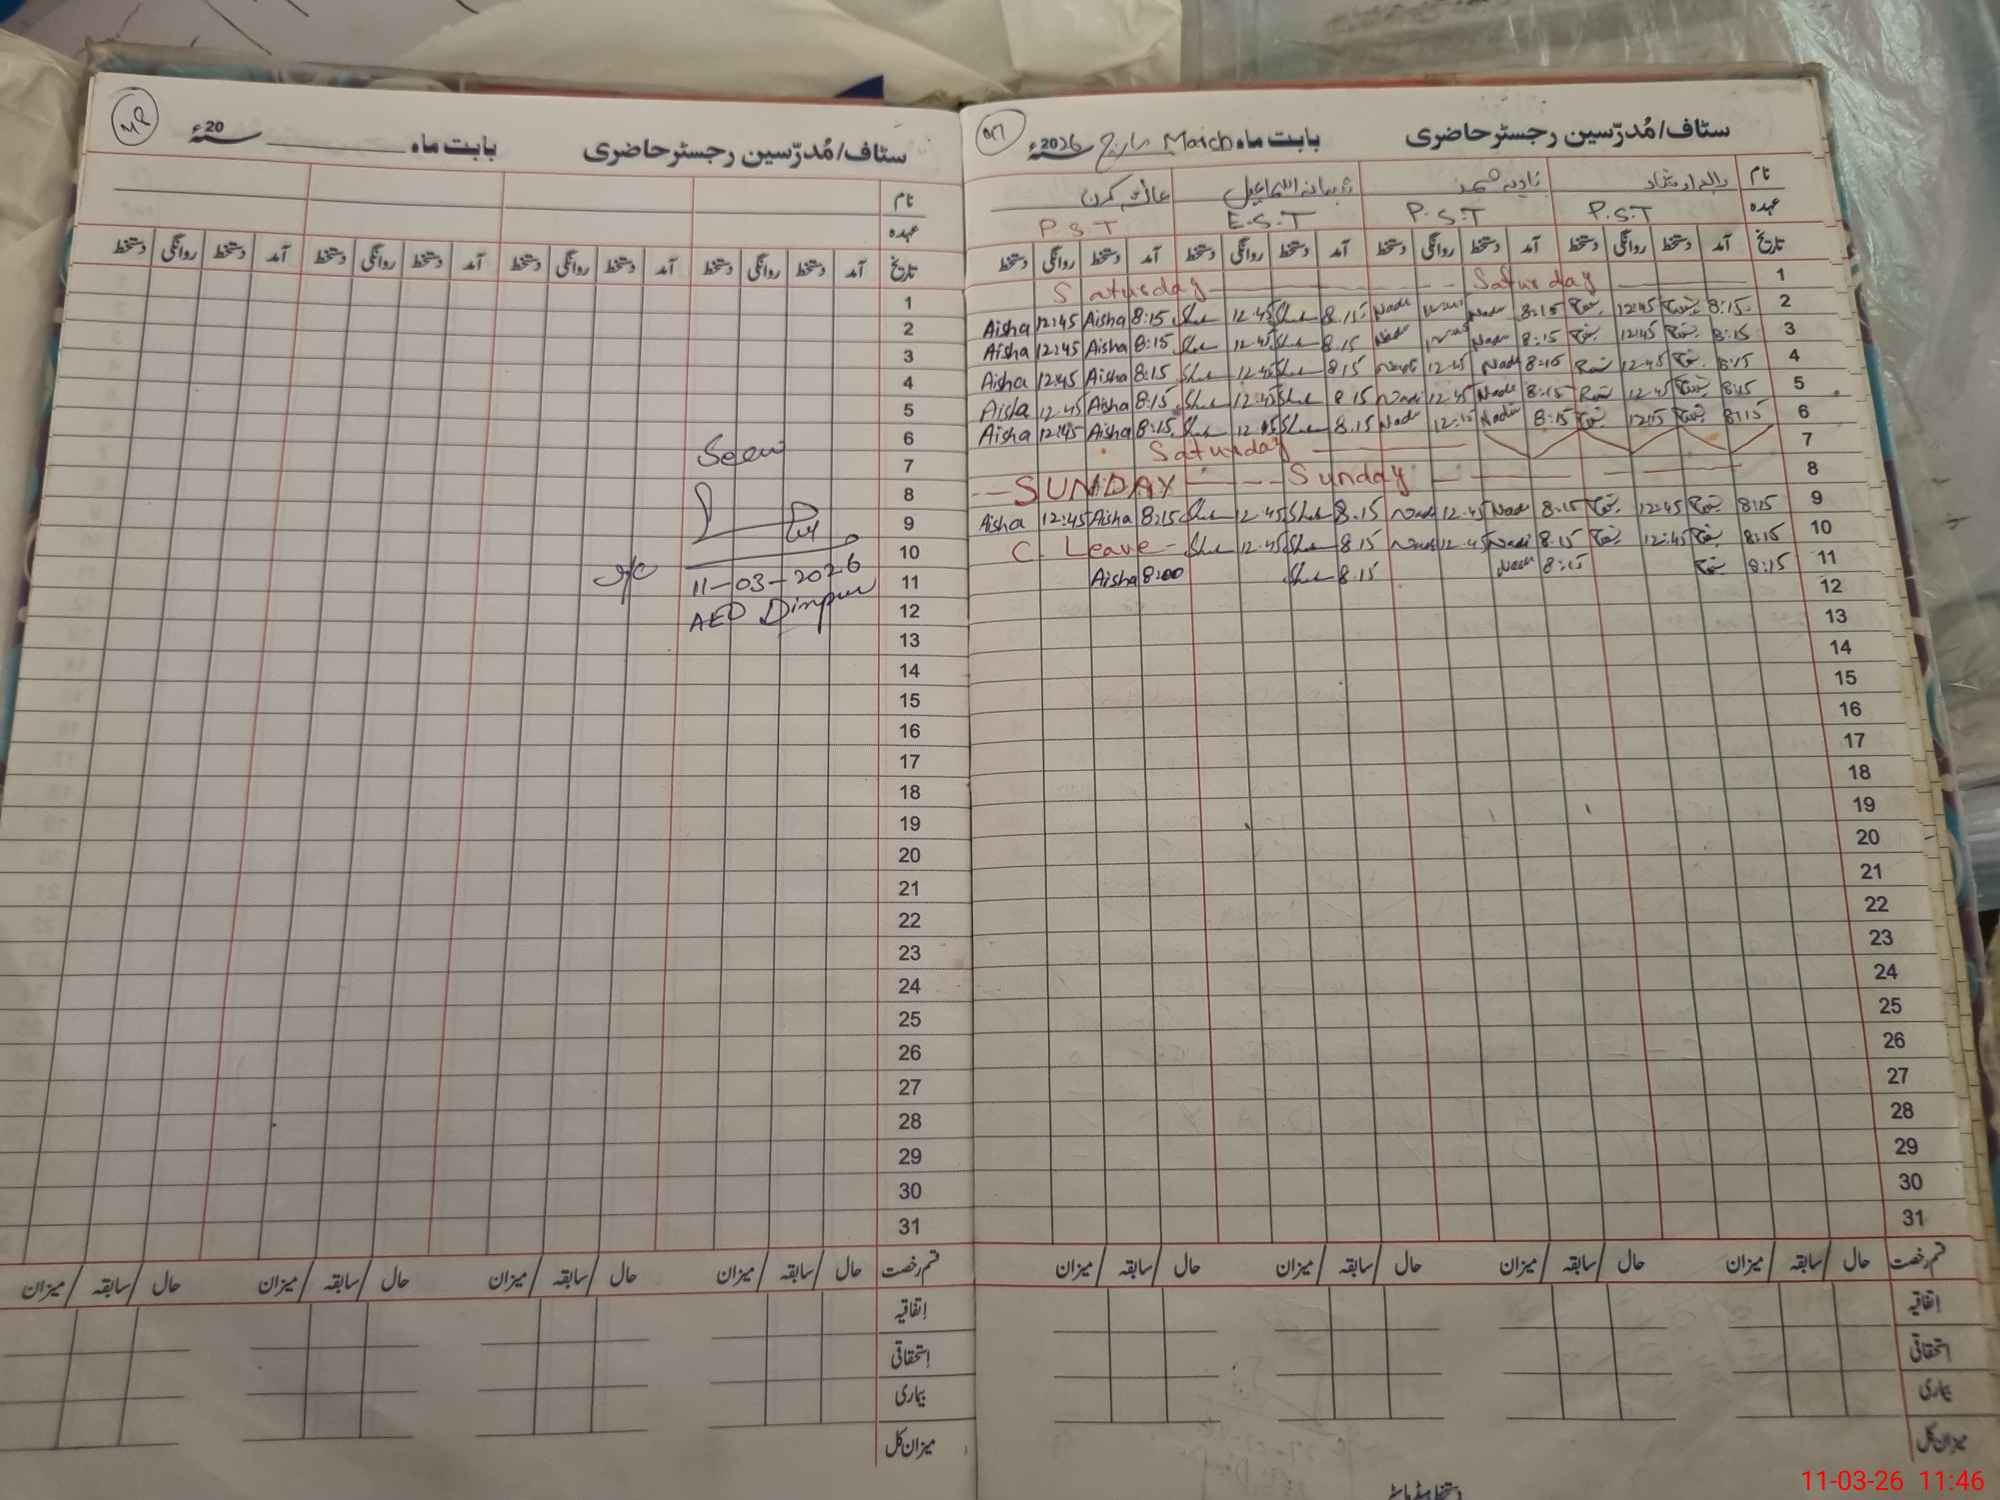 سٹاف/مُدرّسین رجسٹر حاضری بابت ماہ March مارچ 2026ء
نام
شبانہ اسماعیل
عہدہ P.S.T P.S.T E.S.T P.S.T
تاریخ آمد دستخط روانگی دستخط آمد دستخط روانگی دستخط آمد دستخط روانگی دستخط آمد دستخط روانگی دستخط
1 Saturday Saturday
2 8:15 12:45 8:15 Nadi 8.15 She 12.45 She 8:15 Aisha 12:45 Aisha
3 8:15 12:45 8:15 Nadi 8.15 She 12.45 She 8:15 Aisha 12:45 Aisha
4 8:15 12.45 8:15 Nadi 12.45 Nadi 8.15 She 12.45 She 8:15 Aisha 12:45 Aisha
5 8:15 12.45 8:15 Nadi 12.45 Nadi 8.15 She 12.45 She 8:15 Aisha 12.45 Aisha
6 8:15 8:15 Nadi Nadi 8.15 She She 8:15 Aisha 12:45 Aisha
7 Saturday
8 SUNDAY Sunday
9 8:15 12:45 8:15 Nadi 12.45 Nadi 8.15 She 12.45 She 8:15 Aisha 12:45 Aisha
10 8:15 12:45 8:15 Nadi 12.45 Nadi 8.15 She 12.45 She C. Leave
11 8:15 8:15 Nadi 8.15 She 8:00 Aisha
12
13
14
15
16
17
18
19
20
21
22
23
24
25
26
27
28
29
30
31
قسم رخصت حال / سابقہ / میزان حال / سابقہ / میزان حال / سابقہ / میزان حال / سابقہ / میزان
اتفاقیہ
استحقاقی
بیماری
میزان کل
سٹاف/مُدرّسین رجسٹر حاضری بابت ماہ 20ء
نام
عہدہ
تاریخ آمد دستخط روانگی دستخط آمد دستخط روانگی دستخط آمد دستخط روانگی دستخط آمد دستخط روانگی دستخط
1
2
3
4
5
6
7 Seen
8
9
10
11 11-03-2026
12 AEO Dinpur
13
14
15
16
17
18
19
20
21
22
23
24
25
26
27
28
29
30
31
قسم رخصت حال / سابقہ / میزان حال / سابقہ / میزان حال / سابقہ / میزان حال / سابقہ / میزان
اتفاقیہ
استحقاقی
بیماری
میزان کل
11-03-26 11:46